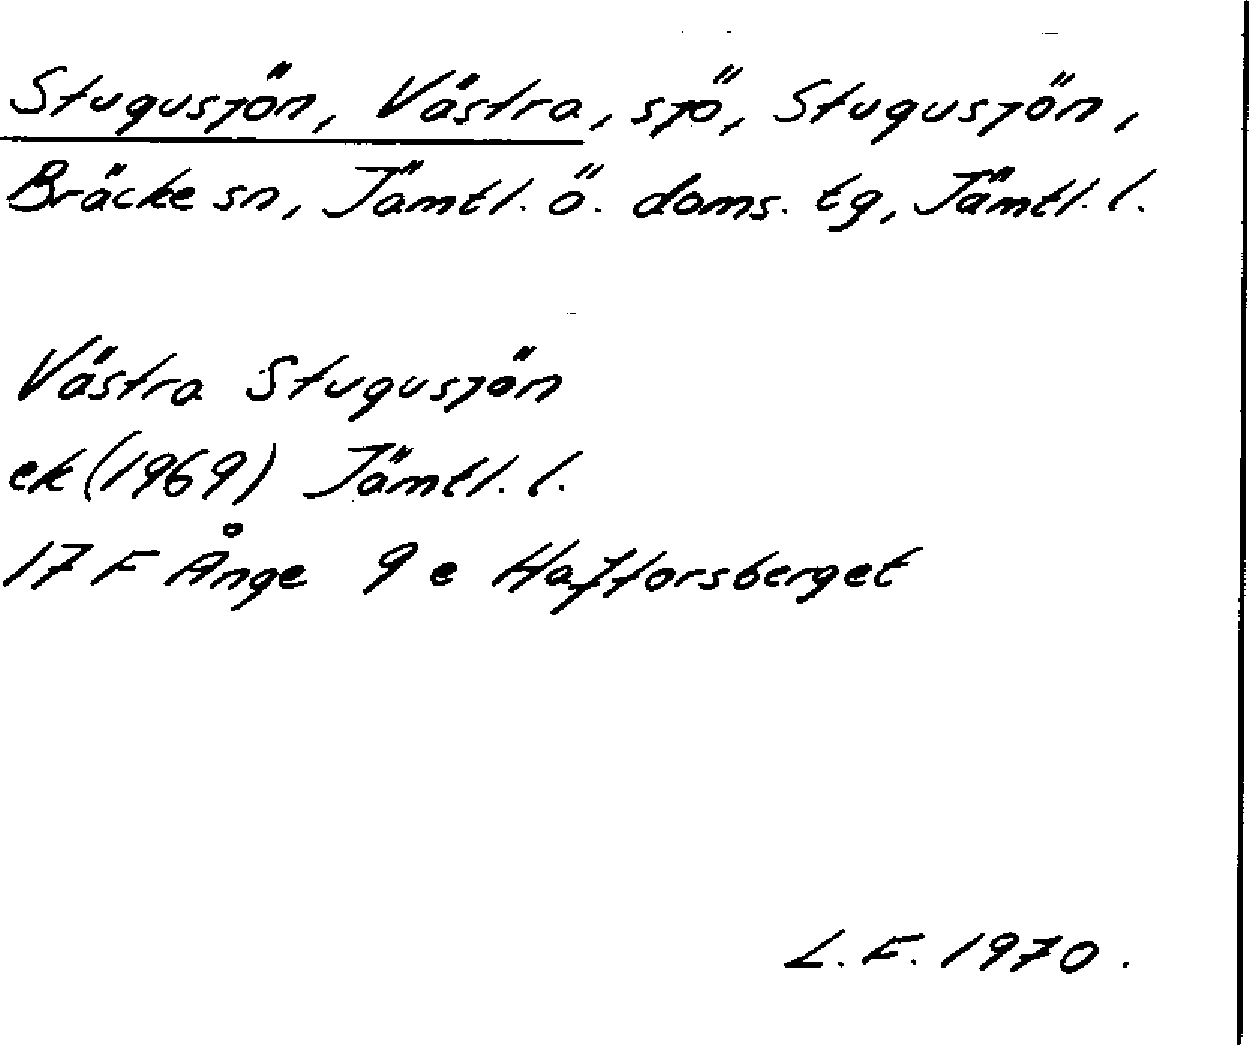 Stugusjön, Västra, sjö, Stugusjön,
Bräcke sn, Jämtl. ö. doms. tg, Jämtl. l.
Västra Stugusjön
ek (1969) Jämtl. l.
17 F Ånge 9 e Hafforsberget
L. F. 1970.